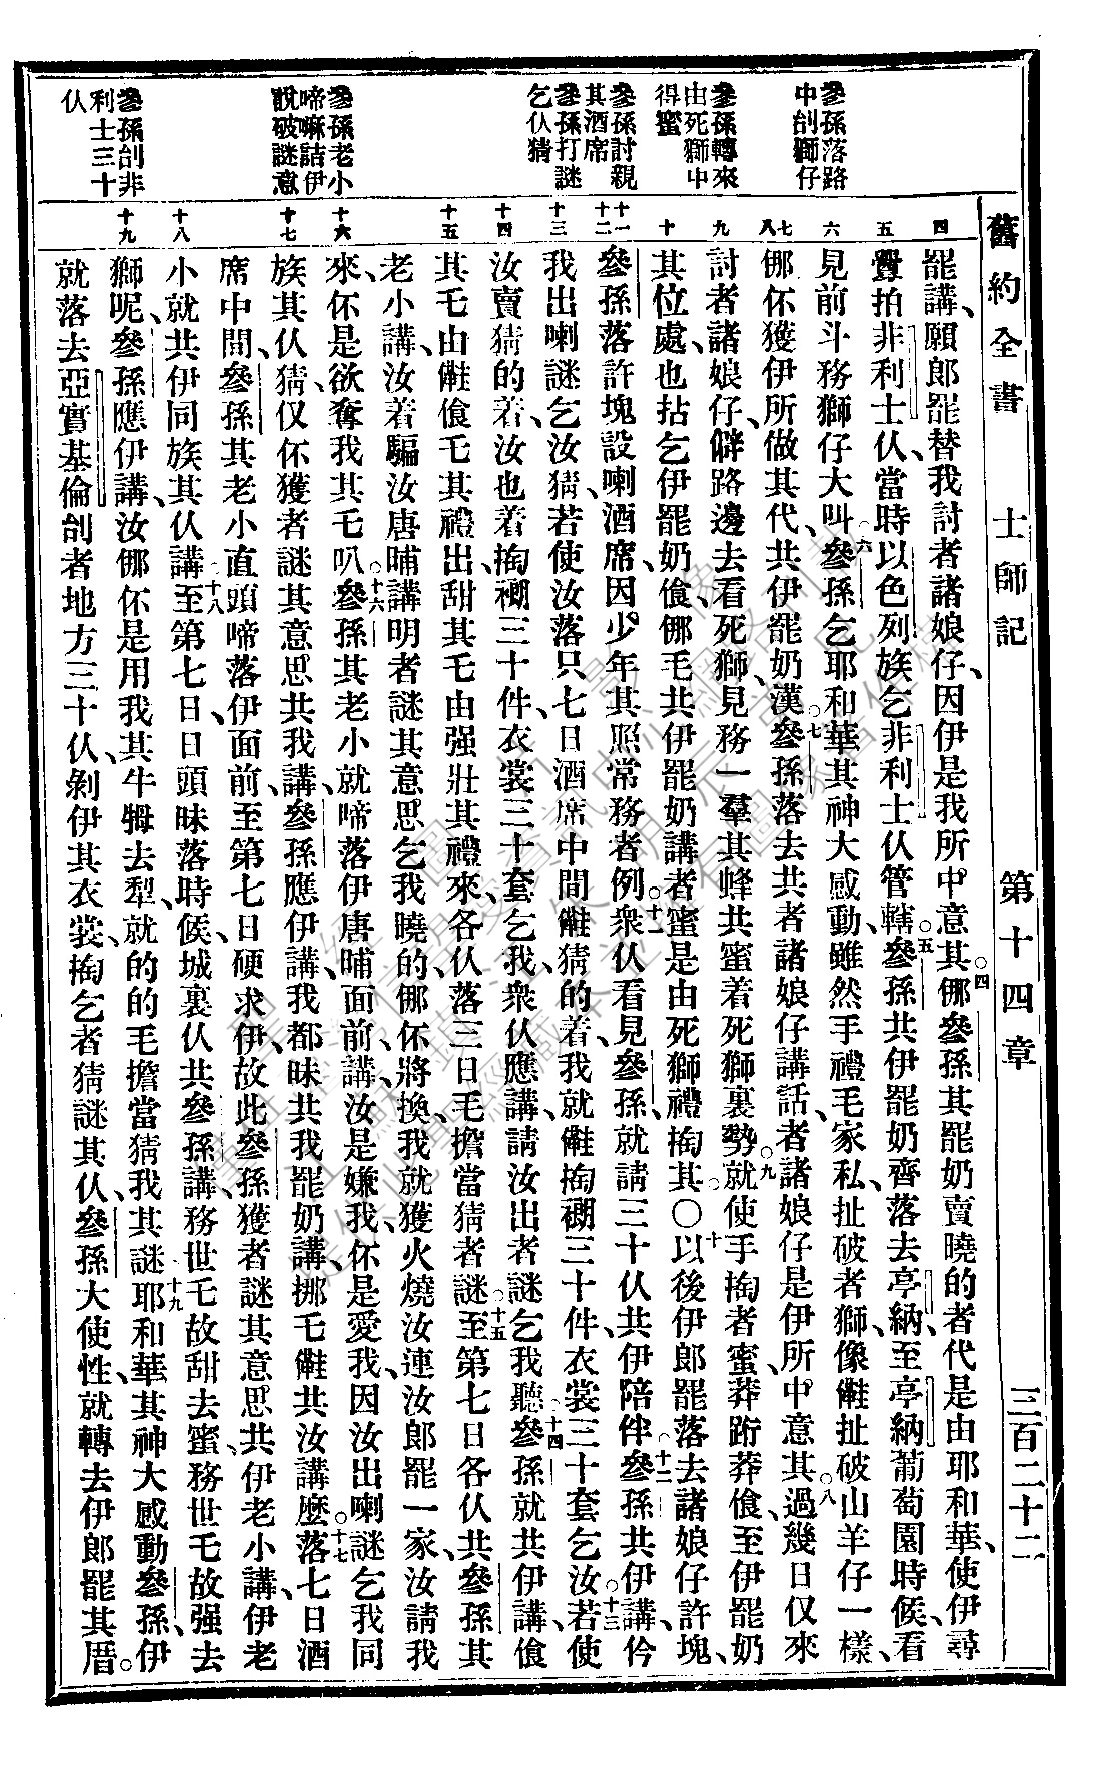 舊約全書　士師記　第十四章　三百二十二
參孫落路
中刣獅仔
參孫轉來
由死獅中
得蜜
參孫討親
其酒席
參孫打謎
乞伩猜
參孫老小
啼嘛詰伊
說破謎意
參孫刣非
利士三十
伩
四
五
六
七
八
九
十
十一
十二
十三
十四
十五
十六
十七
十八
十九
罷講、願郎罷替我討者諸娘仔、因伊是我所中意其。○四㑚參孫其罷奶賣曉的者代是由耶和華、使伊尋
釁拍非利士伩、當時以色列族乞非利士伩管轄。○五參孫共伊罷奶齊落去亭納、至亭納葡萄園時候、看
見前斗務獅仔大叫。○六參孫乞耶和華其神大感動、雖然手禮毛家私、扯破者獅、像㑸扯破山羊仔一樣、
㑚伓獲伊所做其代、共伊罷奶漢。○七參孫落去共者諸娘仔講話、者諸娘仔是伊所中意其。○八過幾日仅來
討者諸娘仔、僻路邊去看死獅、見務一羣其蜂共蜜着死獅裏勢。○九就使手掏者蜜、莽跡莽飡、至伊罷奶
其位處、也拈乞伊罷奶飡、㑚毛共伊罷奶講者蜜是由死獅禮掏其。○十以後伊郎罷落去諸娘仔許塊、
參孫落許塊設喇酒席、因少年其照常務者例。○十一衆伩看見參孫、就請三十伩共伊陪伴。○十二參孫共伊講、仱
我出喇謎乞汝猜、若使汝落只七日酒席中間㑸猜的着、我就㑸掏裯三十件、衣裳三十套乞汝。○十三若使
汝賣猜的着、汝也着掏裯三十件、衣裳三十套乞我、衆伩應講、請汝出者謎乞我聽。○十四參孫就共伊講、飡
其乇由㑸飡乇其禮出、甜其乇由强壯其禮來、各伩落三日毛擔當猜者謎。○十五至第七日各伩共參孫其
老小講、汝着騙汝唐晡講明者謎其意思乞我曉的、㑚伓將換、我就獲火燒汝連汝郎罷一家、汝請我
來、伓是欲奪我其乇叭。○十六參孫其老小、就啼落伊唐晡面前、講、汝是嫌我、伓是愛我、因汝出喇謎乞我同
族其伩猜、仅伓獲者謎其意思共我講、參孫應伊講、我都昧共我罷奶講、挪乇㑸共汝講麽。○十七落七日酒
席中間、參孫其老小直頭啼落伊面前、至第七日硬求伊、故此參孫獲者謎其意思共伊老小講、伊老
小就共伊同族其伩講。○十八至第七日、日頭昧落時候、城裏伩共參孫講、務世乇故甜去蜜、務世乇故强去
獅呢、參孫應伊講、汝㑚伓是用我其牛牳去犁、就的的毛擔當猜我其謎。○十九耶和華其神大感動參孫、伊
就落去亞實基倫刣者地方三十伩、剝伊其衣裳、掏乞者猜謎其伩、參孫大使性、就轉去伊郎罷其厝。